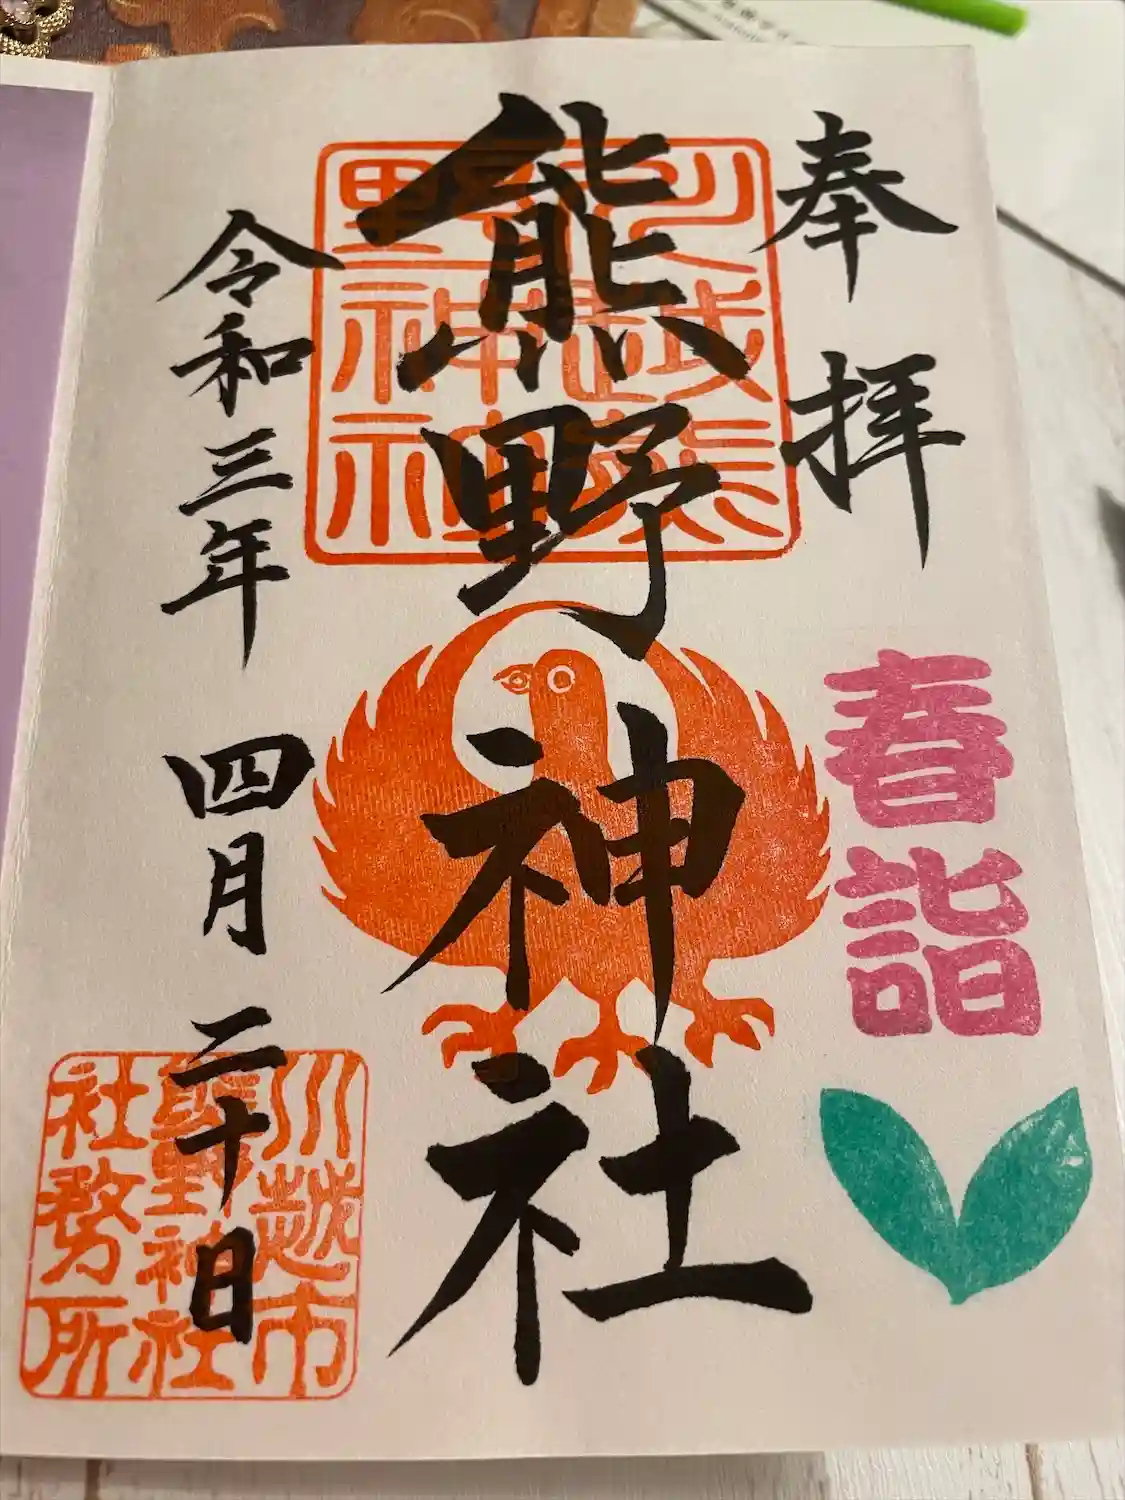 奉拝
春詣
熊野神社
川越熊野神社
令和三年 四月 二十日
川越市
熊野神社
社務所